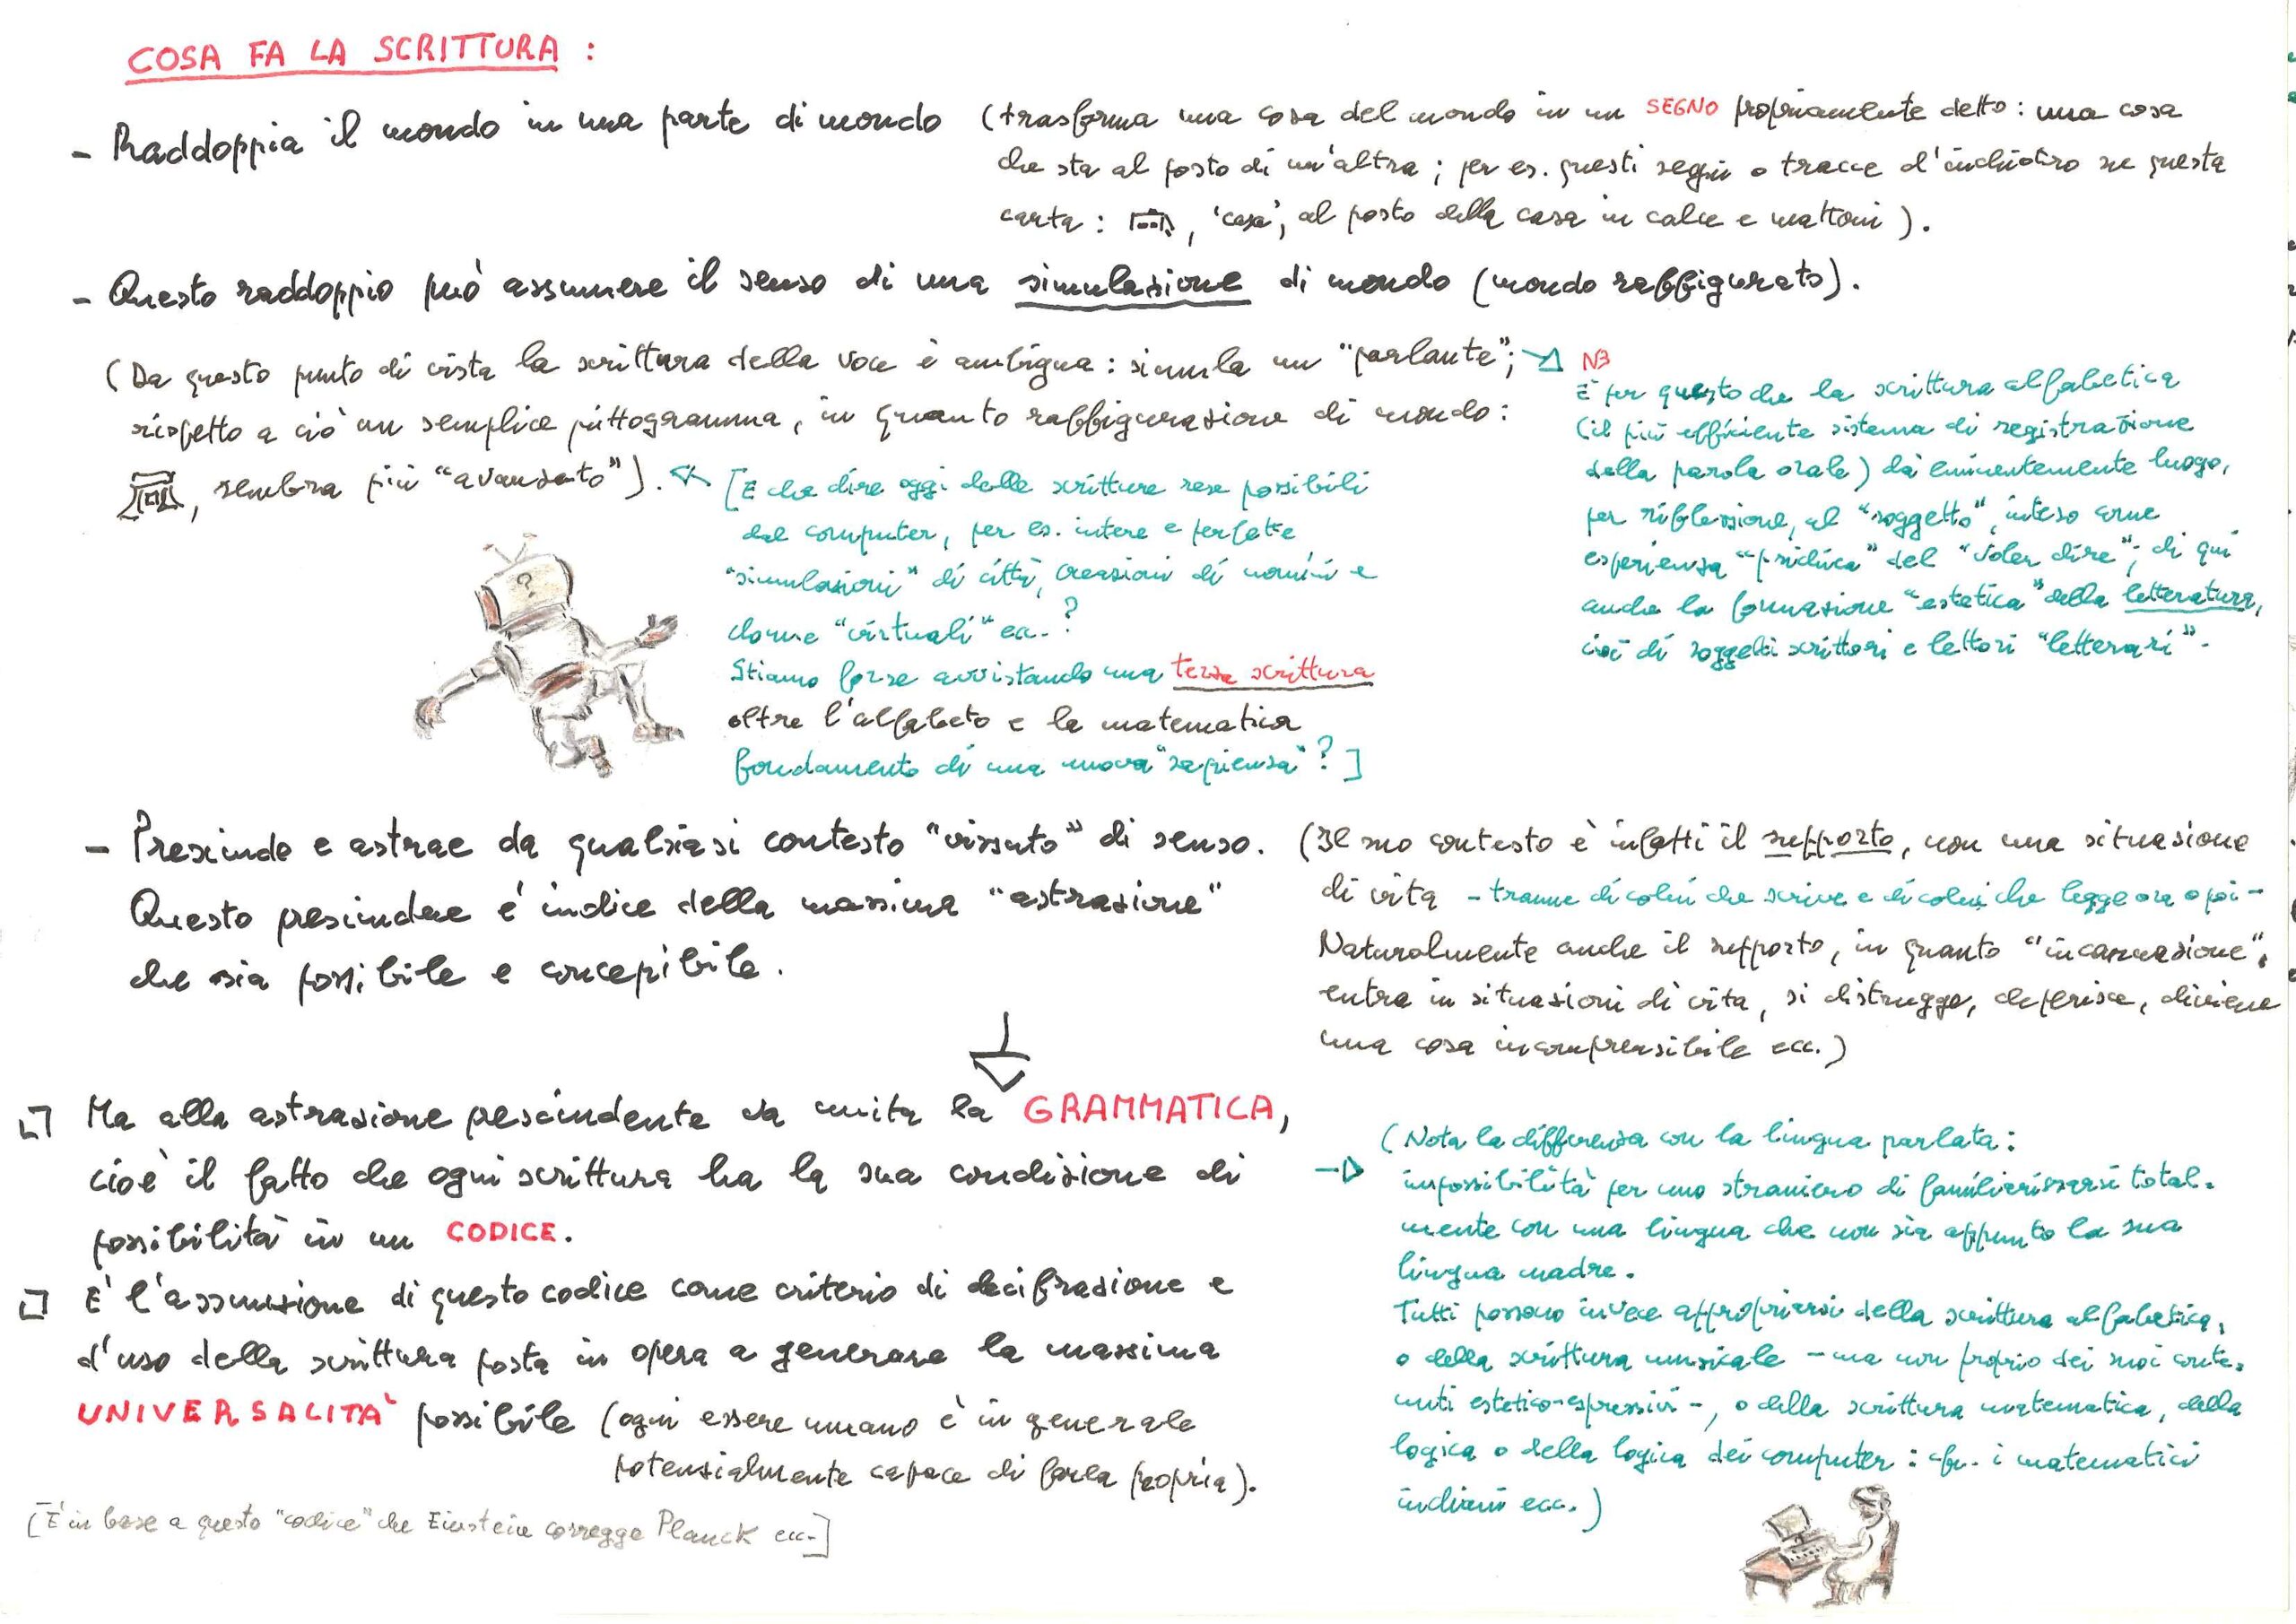 COSA FA LA SCRITTURA :
- Raddoppia il mondo in una parte di mondo
(trasforma una cosa del mondo in un SEGNO propriamente detto : una cosa
che sta al posto di un'altra ; per es. questi segni o tracce d'inchiostro su questa
carta : , 'casa', al posto della casa in calce e mattoni ).
- Questo raddoppio può assumere il senso di una simulazione di mondo (mondo raffigurato).
(Da questo punto di vista la scrittura della voce è ambigua : simula un "parlante";
rispetto a ciò un semplice pittogramma, in quanto raffigurazione di mondo :
, sembra più "avanzato").
NB
È per questo che la scrittura alfabetica
(il più efficiente sistema di registrazione
della parola orale) dà eminentemente luogo,
per riflessione, al "soggetto", inteso come
esperienza "psichica" del "voler dire"; di qui
anche la formazione "estetica" della letteratura,
cioè di soggetti scrittori e lettori "letterari".
[E che dire oggi delle scritture rese possibili
dal computer, per es. intere e perfette
"simulazioni" di città, creazioni di uomini e
donne "virtuali" ecc. ?
Stiamo forse avvistando una terza scrittura
oltre l'alfabeto e la matematica
fondamento di una nuova "sapienza" ? ]
?
- Prescinde e astrae da qualsiasi contesto "vissuto" di senso.
Questo prescindere è indice della massima "astrazione"
che sia possibile e concepibile.
(Il suo contesto è infatti il supporto, non una situazione
di vita - tranne di colui che scrive e di colui che legge ora o poi -
Naturalmente anche il supporto, in quanto "incarnazione",
entra in situazioni di vita, si distrugge, deperisce, diviene
una cosa incomprensibile ecc.)
Ma alla astrazione pescindente va unita la GRAMMATICA,
cioè il fatto che ogni scrittura ha la sua condizione di
possibilità in un CODICE.
È l'assunzione di questo codice come criterio di decifrazione e
d'uso della scrittura posta in opera a generare la massima
UNIVERSALITÀ possibile (ogni essere umano è in generale
potenzialmente capace di farla propria).
[È in base a questo "codice" che Einstein corregge Planck ecc.]
(Nota la differenza con la lingua parlata :
impossibilità per uno straniero di familiarizzarsi total-
mente con una lingua che non sia appunto la sua
lingua madre.
Tutti possono invece appropriarsi della scrittura alfabetica,
o della scrittura musicale - ma non proprio dei suoi conte-
nuti estetico-espressivi -, o della scrittura matematica, della
logica o della logica dei computer : cfr. i matematici
indiani ecc.)